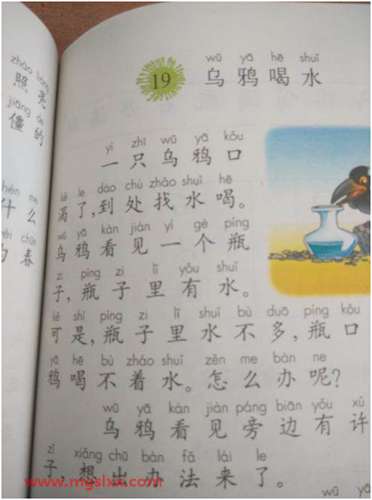 zhào liàng
照 亮
jiāng de
僵 的
shén me
什 么
chūn
春
19
wū yā hē shuǐ
乌 鸦 喝 水
yì zhī wū yā kǒu
一 只 乌 鸦 口
kě le dào chù zhǎo shuǐ hē
渴 了,到 处 找 水 喝。
wū yā kàn jiàn yí gè píng
乌 鸦 看 见 一 个 瓶
zi píng zi lǐ yǒu shuǐ
子,瓶 子 里 有 水。
kě shì píng zi lǐ shuǐ bù duō píng kǒu
可 是,瓶 子 里 水 不 多,瓶 口
yā hē bù zháo shuǐ zěn me bàn ne
鸦 喝 不 着 水。怎 么 办 呢?
wū yā kàn jiàn páng biān yǒu xǔ
乌 鸦 看 见 旁 边 有 许
zǐ xiǎng chū bàn fǎ lái le
子 想 出 办 法 来 了。
www.mgslxx.com